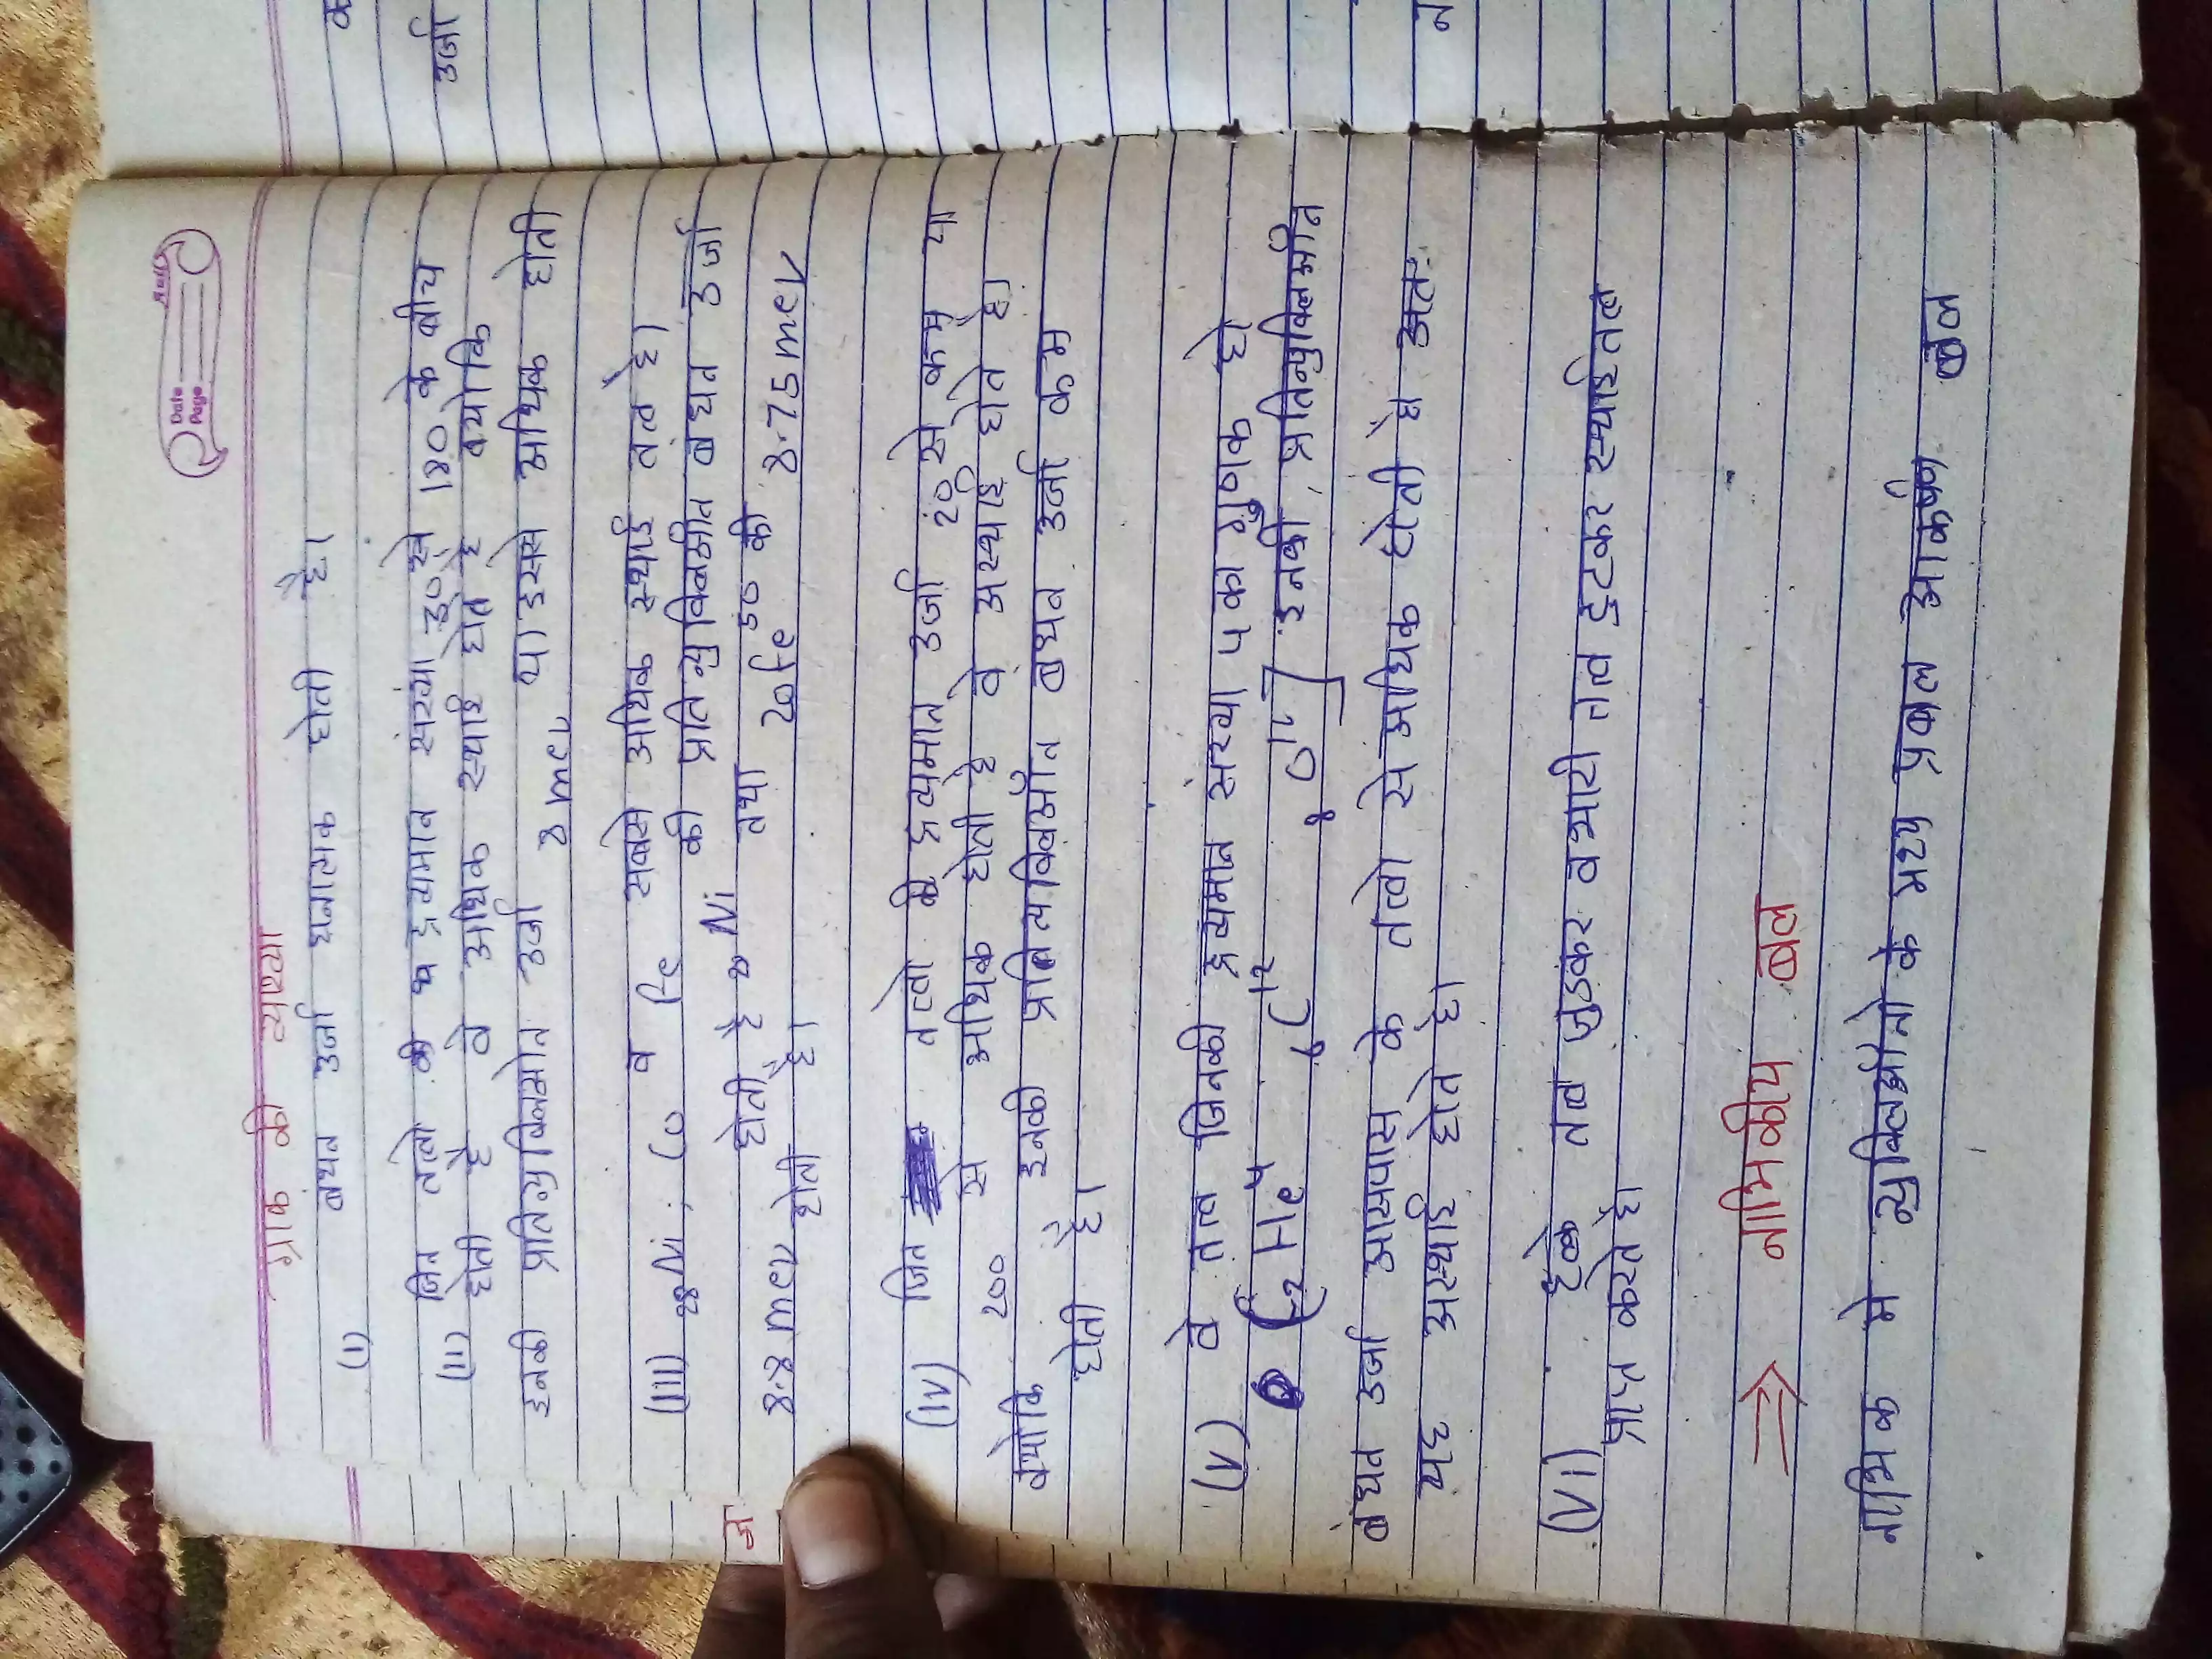 Date
Page
ग्राफ की व्याख्या
(I) बंधन उर्जा धनात्मक होती है।
(II) जिन तत्वो की द्रव्यमान संख्या 30 से 180 के बीच
होती है वे अधिक स्थाई होते है क्योकि
इनकी प्रतिन्युक्लिओन उर्जा 8 mev या इससे अधिक होती
(III) 28Ni, Co व Fe सबसे अधिक स्थाई तत्व है।
की प्रतिन्युक्लिओन बंधन उर्जा
8.8 mev होती है Ni तथा 20fe 50 की 8.75 mev
होती है।
(IV) जिन तत्वो की द्रव्यमान उर्जा 20 से कम या
200 से अधिक होती है वे अस्थाई होते है।
क्योकि इनकी बंधन उर्जा कम
होती है।
(V) वे तत्व जिनकी द्रव्यमान संख्या 4 का गुणक हो
(2He4 6C12 8O16] इनकी प्रतिन्युक्लिओन
बंधन उर्जा आसपास के तत्वो से अधिक होती है अतः
यह अस्थाई होते है।
(VI) हल्के तत्व जुडकर व भारी तत्व टुटकर स्थाईतत्व
प्राप्त करते है।
⇒ नाभिकीय बल
नाभिक मे न्युक्लिओनो के मध्य प्रबल आकर्षण बल
उर्जा